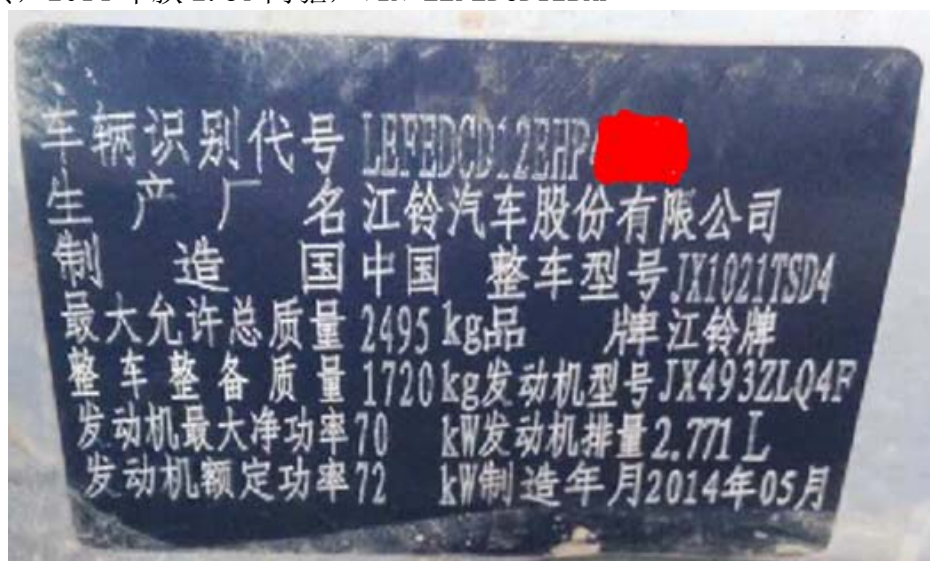 车辆识别代号 LEFEDCD12EHP
生产厂名 江铃汽车股份有限公司
制造国 中国 整车型号 JX1021TSD4
最大允许总质量 2495 kg 品牌 江铃牌
整车整备质量 1720 kg 发动机型号 JX493ZLQ4F
发动机最大净功率 70 kW 发动机排量 2.771 L
发动机额定功率 72 kW 制造年月 2014年05月